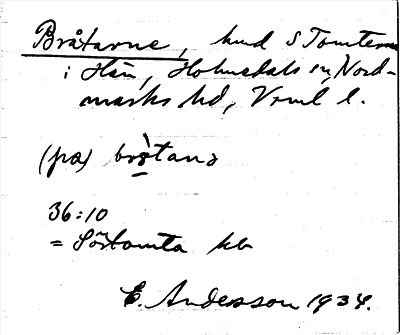 Bråtarne, hmd S Tomterna
i Hån, Holmedals sn, Nord-
marks hd, Vrml. l.
(på) bròtana
36:10
= Sörtomta kb
E. Andersson 1934.